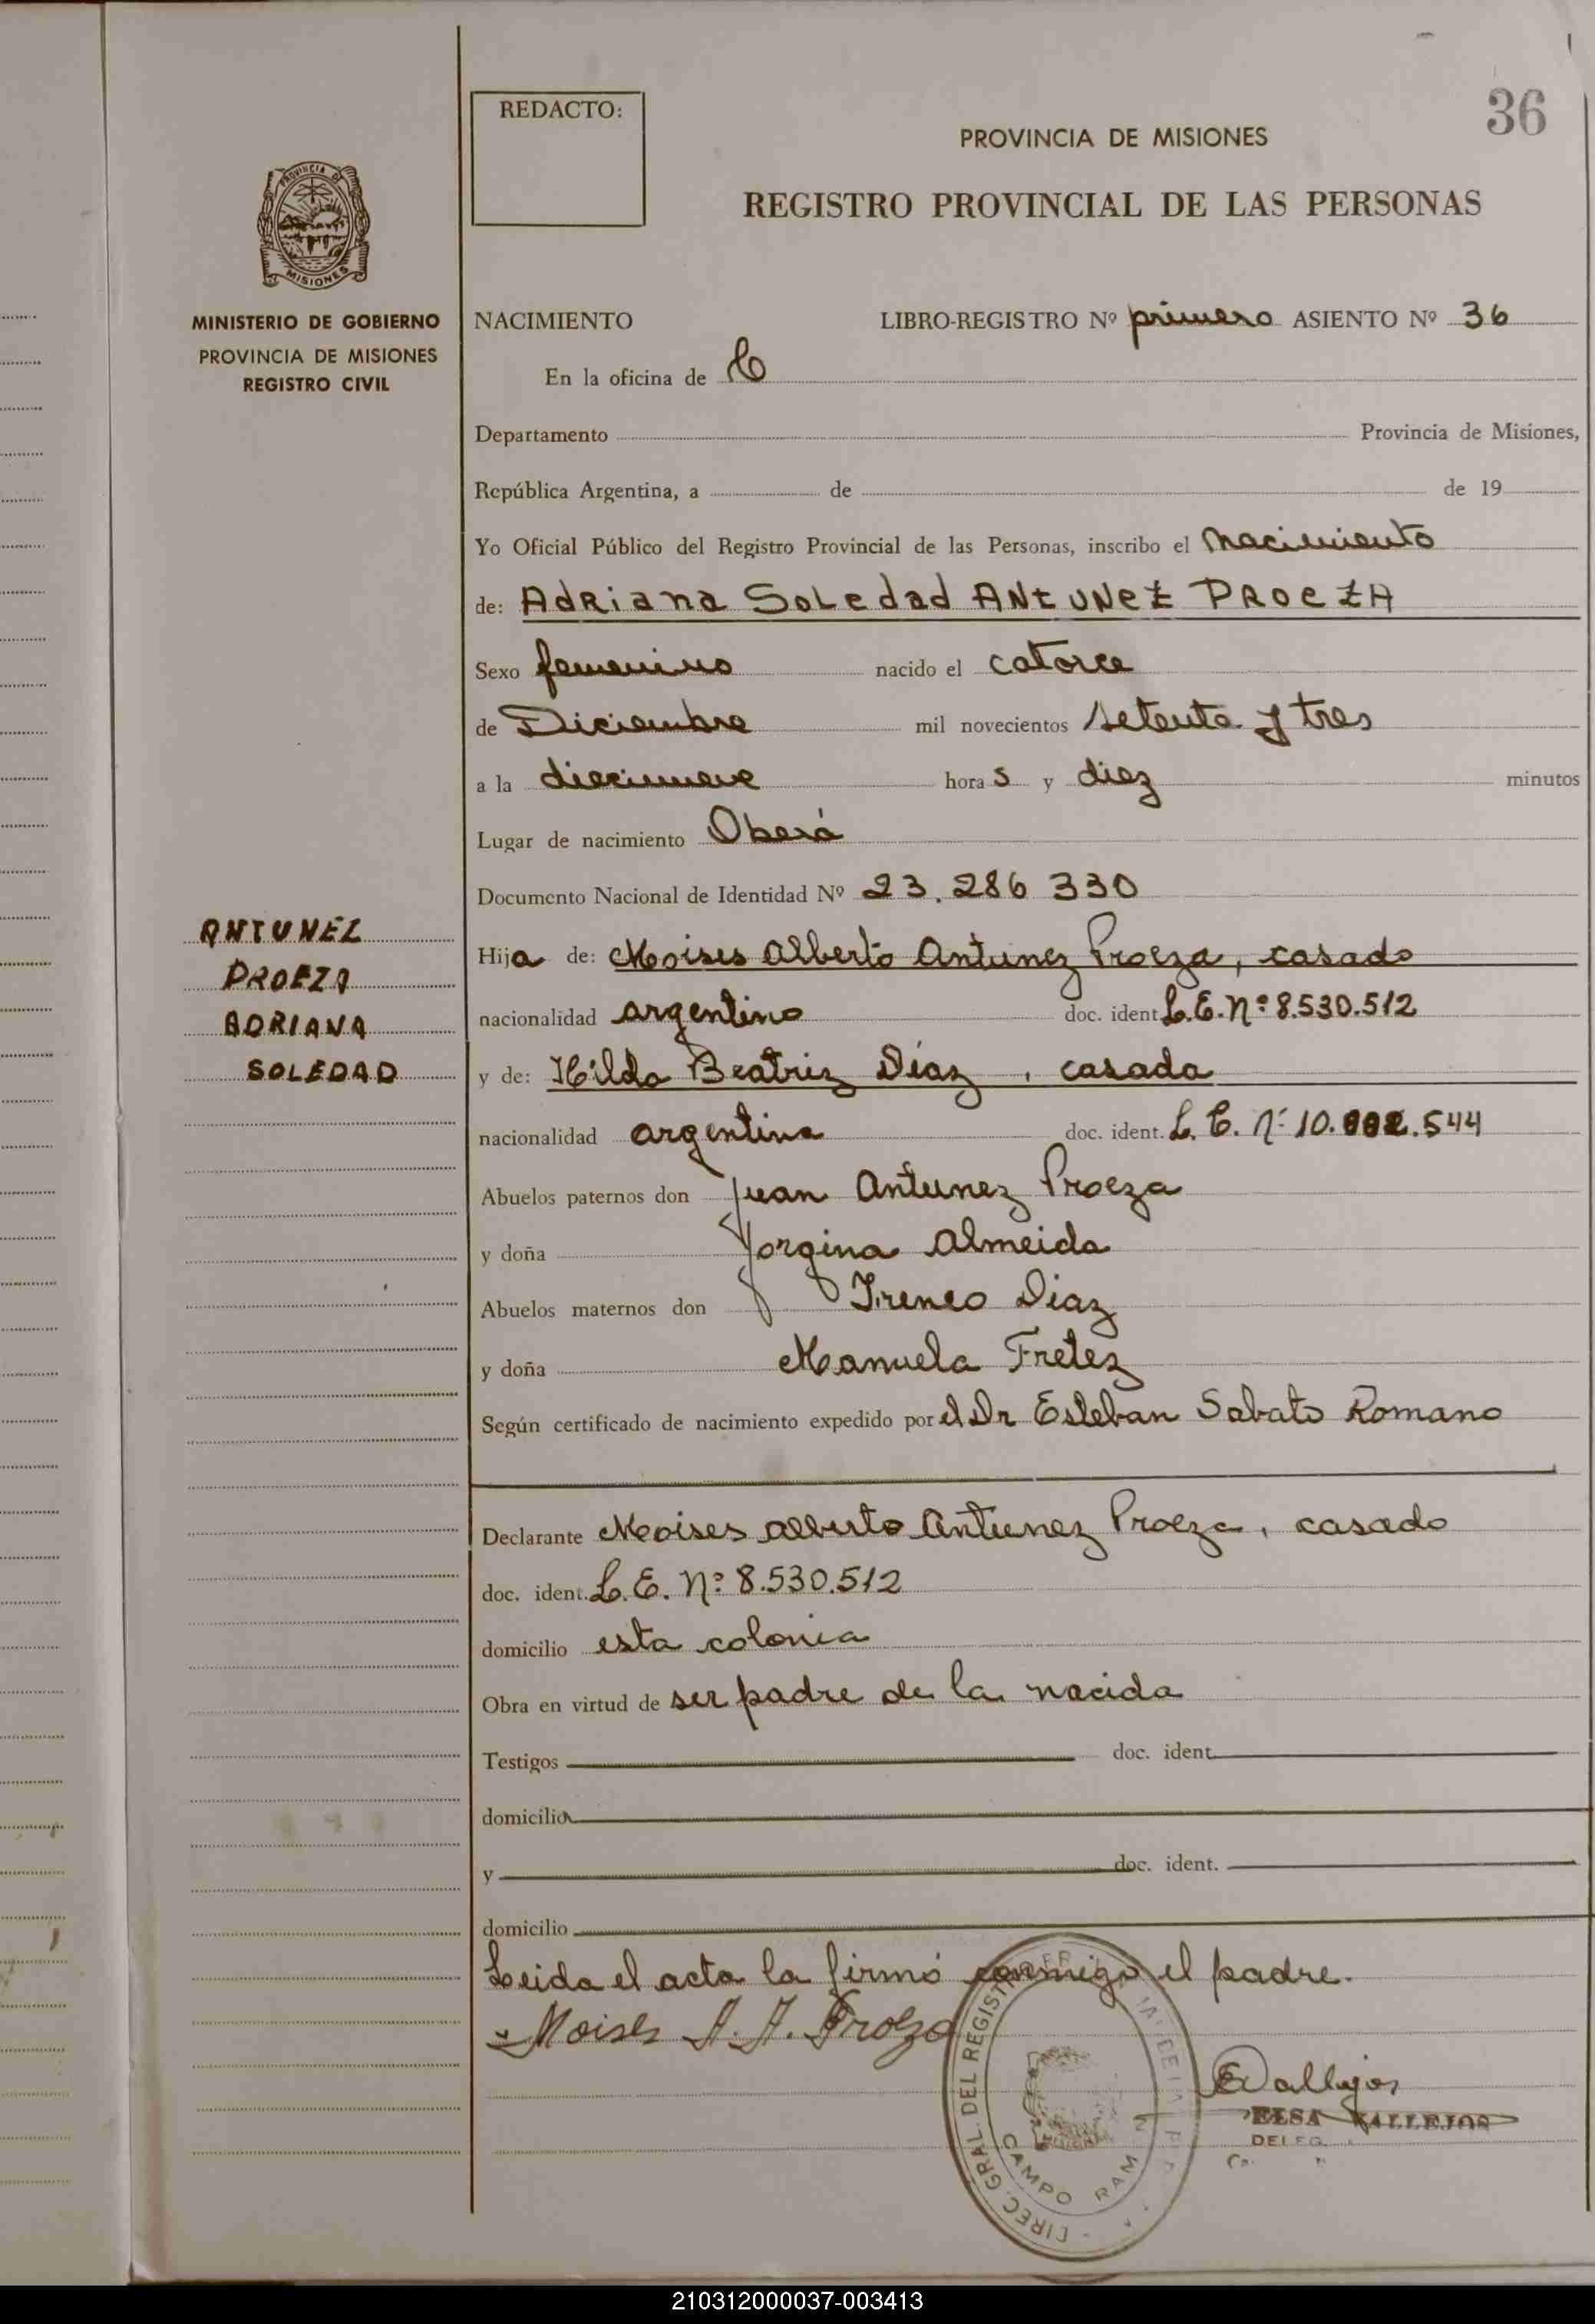 36
REDACTO:
PROVINCIA DE MISIONES
REGISTRO PROVINCIAL DE LAS PERSONAS
PROVINCIA DE
MISIONES
MINISTERIO DE GOBIERNO
PROVINCIA DE MISIONES
REGISTRO CIVIL
NACIMIENTO LIBRO-REGISTRO Nº primero ASIENTO Nº 36
En la oficina de
Departamento Provincia de Misiones,
República Argentina, a de de 19
Yo Oficial Público del Registro Provincial de las Personas, inscribo el Nacimiento
de: Adriana Soledad ANtUNeZ PROeZA
Sexo femenino nacido el catorce
de Diciembre mil novecientos setenta y tres
a la diecinueve horas y diez minutos
Lugar de nacimiento Oberá
Documento Nacional de Identidad Nº 23.286 330
ANTUNEZ
PROEZA
ADRIANA
SOLEDAD
Hija de: Moises Alberto Antunez Proeza, casado
nacionalidad argentino doc. ident. L.E. Nº 8.530.512
y de: Hilda Beatriz Díaz, casada
nacionalidad argentina doc. ident. L. C. Nº 10. .544
Abuelos paternos don Juan Antunez Proeza
y doña Jorgina Almeida
Abuelos maternos don Ireneo Diaz
y doña Manuela Fretez
Según certificado de nacimiento expedido por el Dr Esteban Sabato Romano
Declarante Moises Alberto Antunez Proeza, casado
doc. ident. L. E. Nº 8.530.512
domicilio esta colonia
Obra en virtud de ser padre de la nacida
Testigos doc. ident.
domicilio
y doc. ident.
domicilio
Leida el acta la firmó conmigo el padre.
Moises A. A. Proeza
DIREC. GRAL. DEL REGISTRO
CAMPO RAM
EVallejos
ELSA VALLEJOS
DELEG.
210312000037-003413